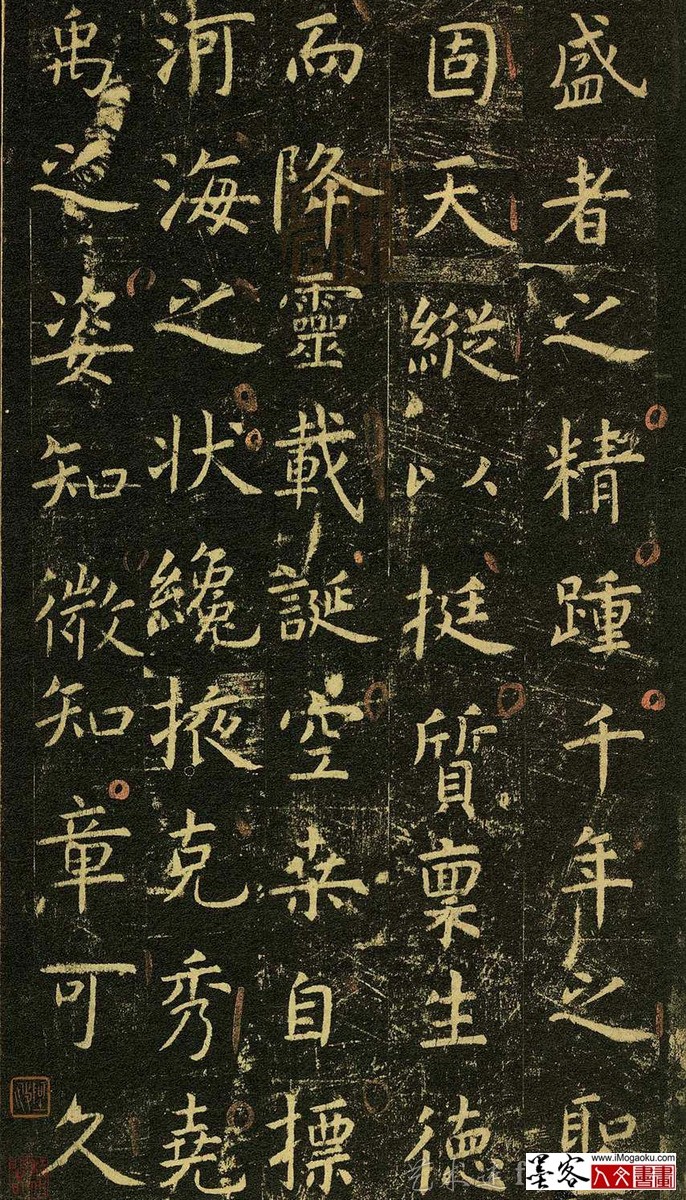 盛者之精踵千年之聖
固天縱以挺質稟生德
而降靈載誕空桒自摽
河海之状纔掖克秀堯
禹之姿知微知章可久
www.iMogaoku.com
墨客